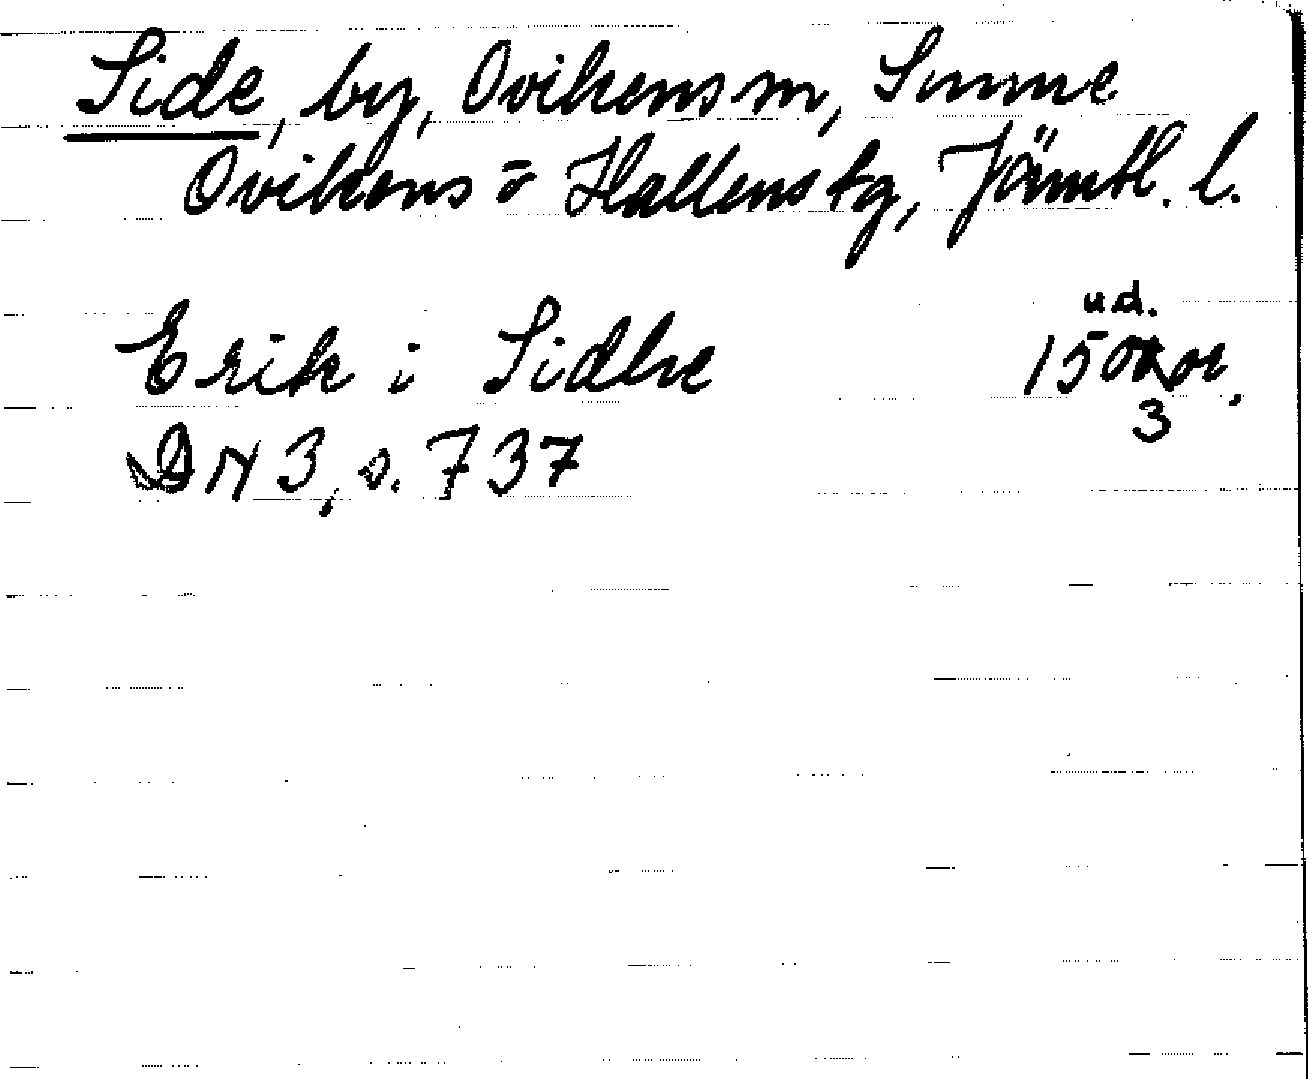 Side, by, Ovikens sn, Sunne
Ovikens o Hallens tg, Jämtl. l.
ud.
Erik i Sidhe 1500 or.
3
DN 3, s. 737